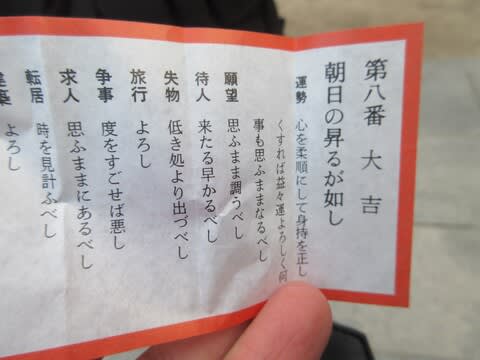 第八番 大吉
朝日の昇るが如し
運勢 心を柔順にして身持を正し
くすれば益々運よろしく何
事も思ふままなるべし
願望 思ふまま調うべし
待人 来たる早かるべし
失物 低き処より出づべし
旅行 よろし
争事 度をすごせば悪し
求人 思ふままにあるべし
転居 時を見計ふべし
建築 よろし